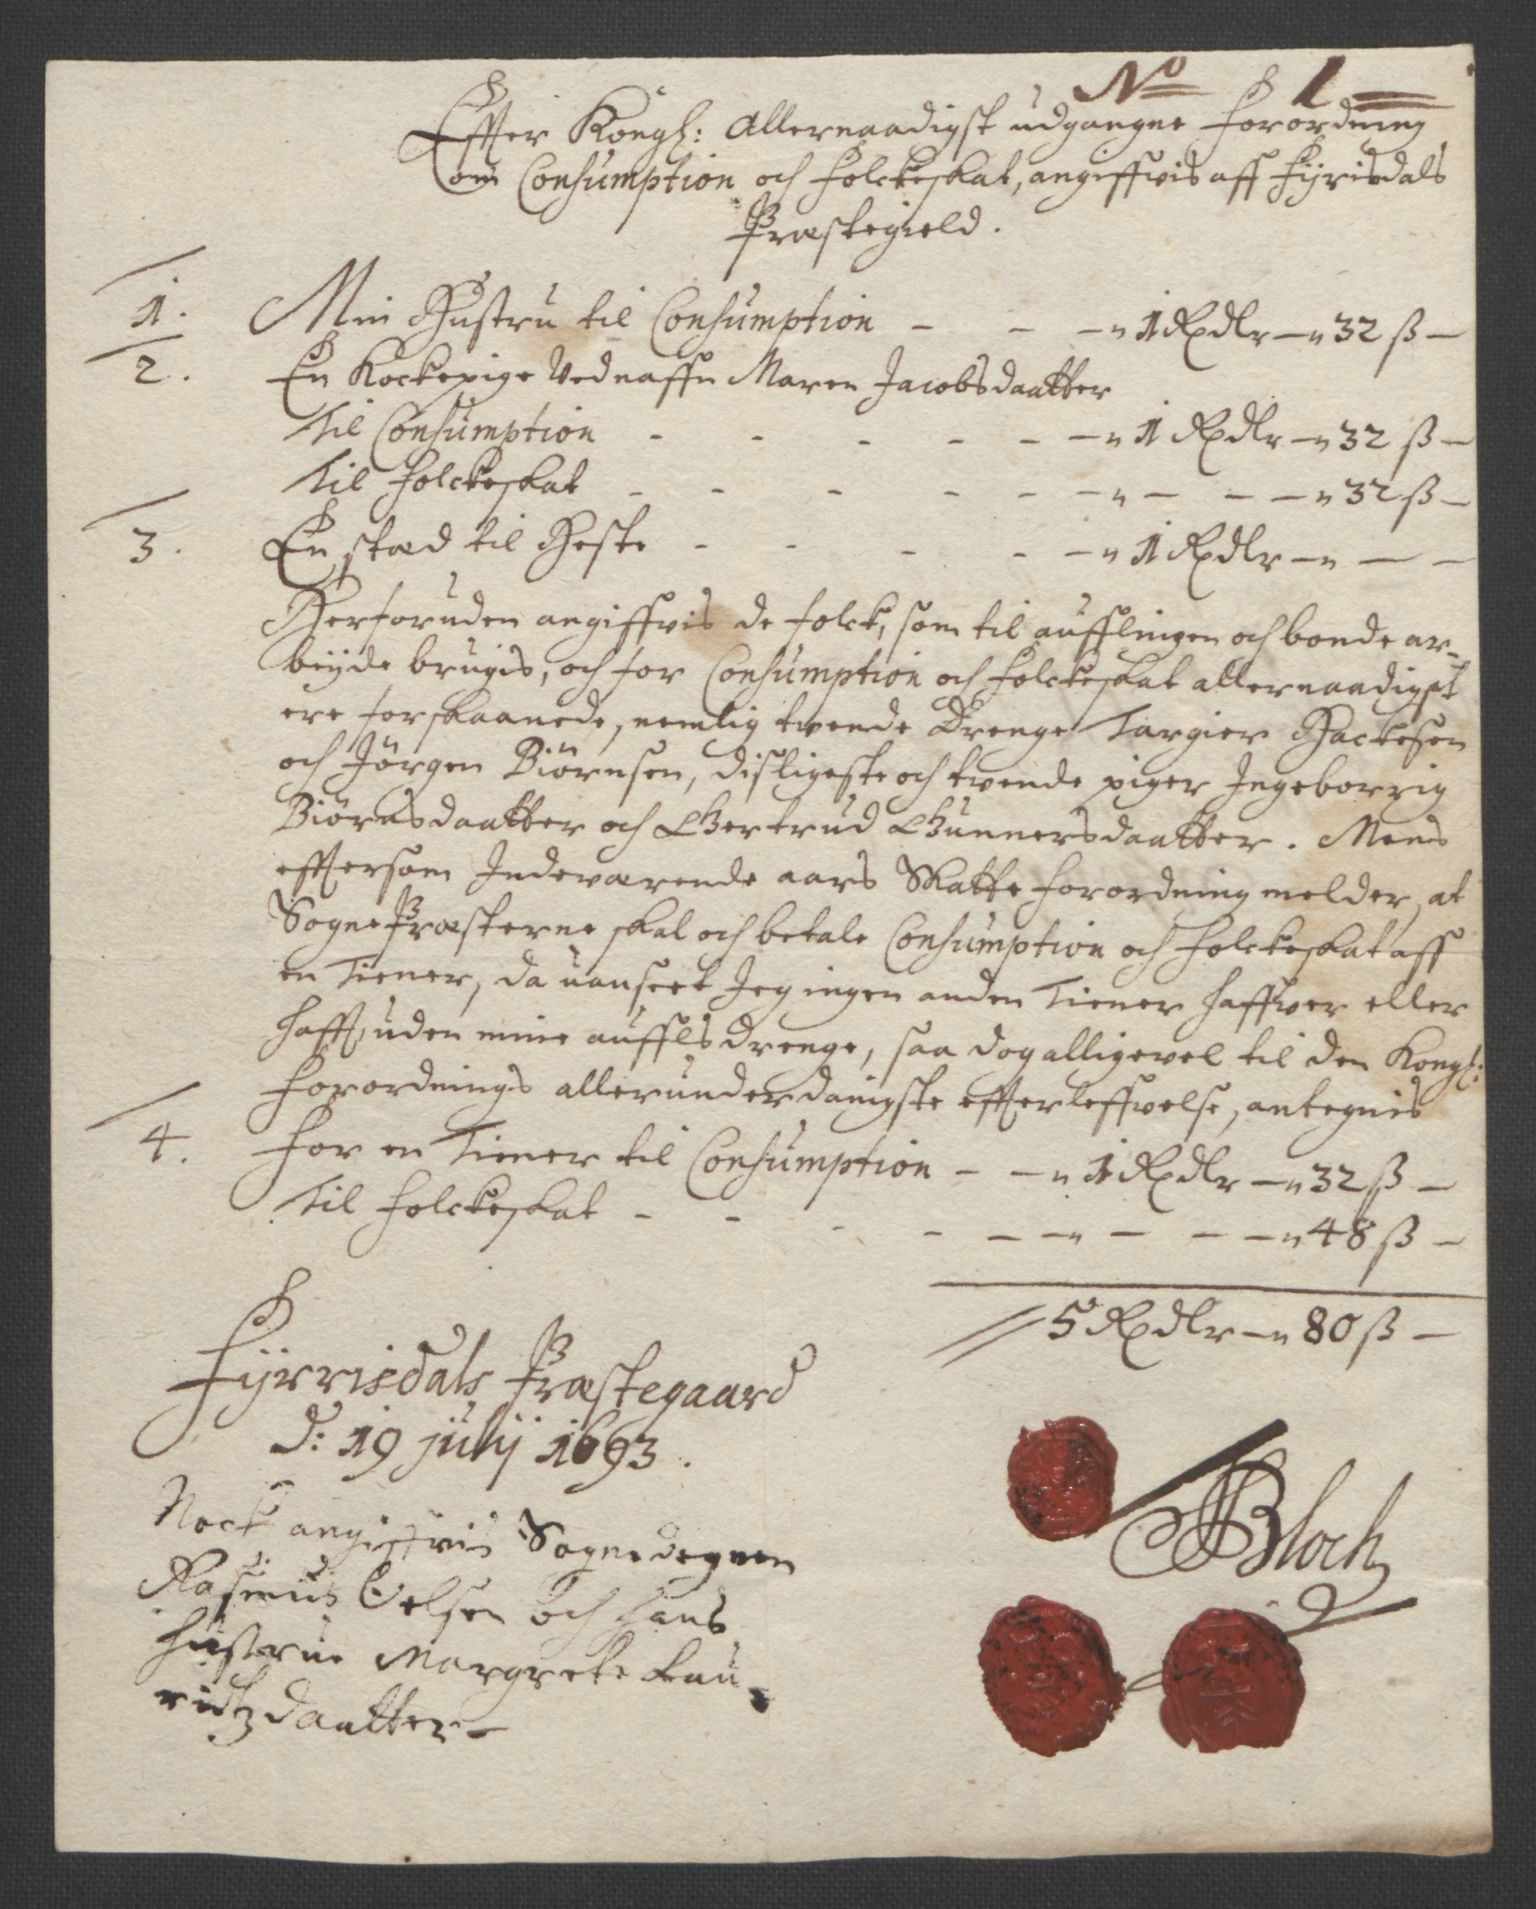 No 1
Effter Kongl: Allernaadigst udgangne Forordning
om Consumption och Folckeskat, angiffvis aff Fyrisdals
Præstegield.
1. Min Hustru til Consumption - - - " 1 Rdlr - " 32 ß -
2. En Kockepige Vednaffn Maren Jacobsdaatter
Til Consumption - - - - - " 1 Rdlr - " 32 ß -
Til Folckeskat - - - - - - " - - - " 32 ß -
3. En stad til Heste - - - - - " 1 Rdlr - " - -
Herforuden angiffvis de folck, som til aufflingen och bonde ar-
beyde brugis, och for Consumption och Folckeskat allernaadigst
ere forskaanede, nemlig tvende Drenge Targier Hackesen
och Jørgen Biørnsen, disligeste och tvende piger Ingeborrig
Biørnsdaatter och Giertrud Gunnersdaatter. Mens
efftersom Indeværende aars Skatte forordning melder, at
SognePræsterne skal och betale Consumption och Folckeskat aff
en Tiener, da uanseet Jeg ingen anden Tiener haffver eller
hafft, uden mine auffls drenge, saa dog alligevel til den Kongl:
Forordnings allerunderdanigste effterleffvelse, antegnis
4. For en Tiener til Consumption - - " 1 Rdlr - " 32 ß -
Til Folckeskat - - - - - - " - - - " 48 ß -
5 Rdlr - " 80 ß -
Fyrrisdals Præstegaard
d: 19 julij 1693.
Nock angiffvis Sognedegnen
Rasmus Oelsen och hans
hustrue Margrete Lau-
ridtzdaatter -
Bloch